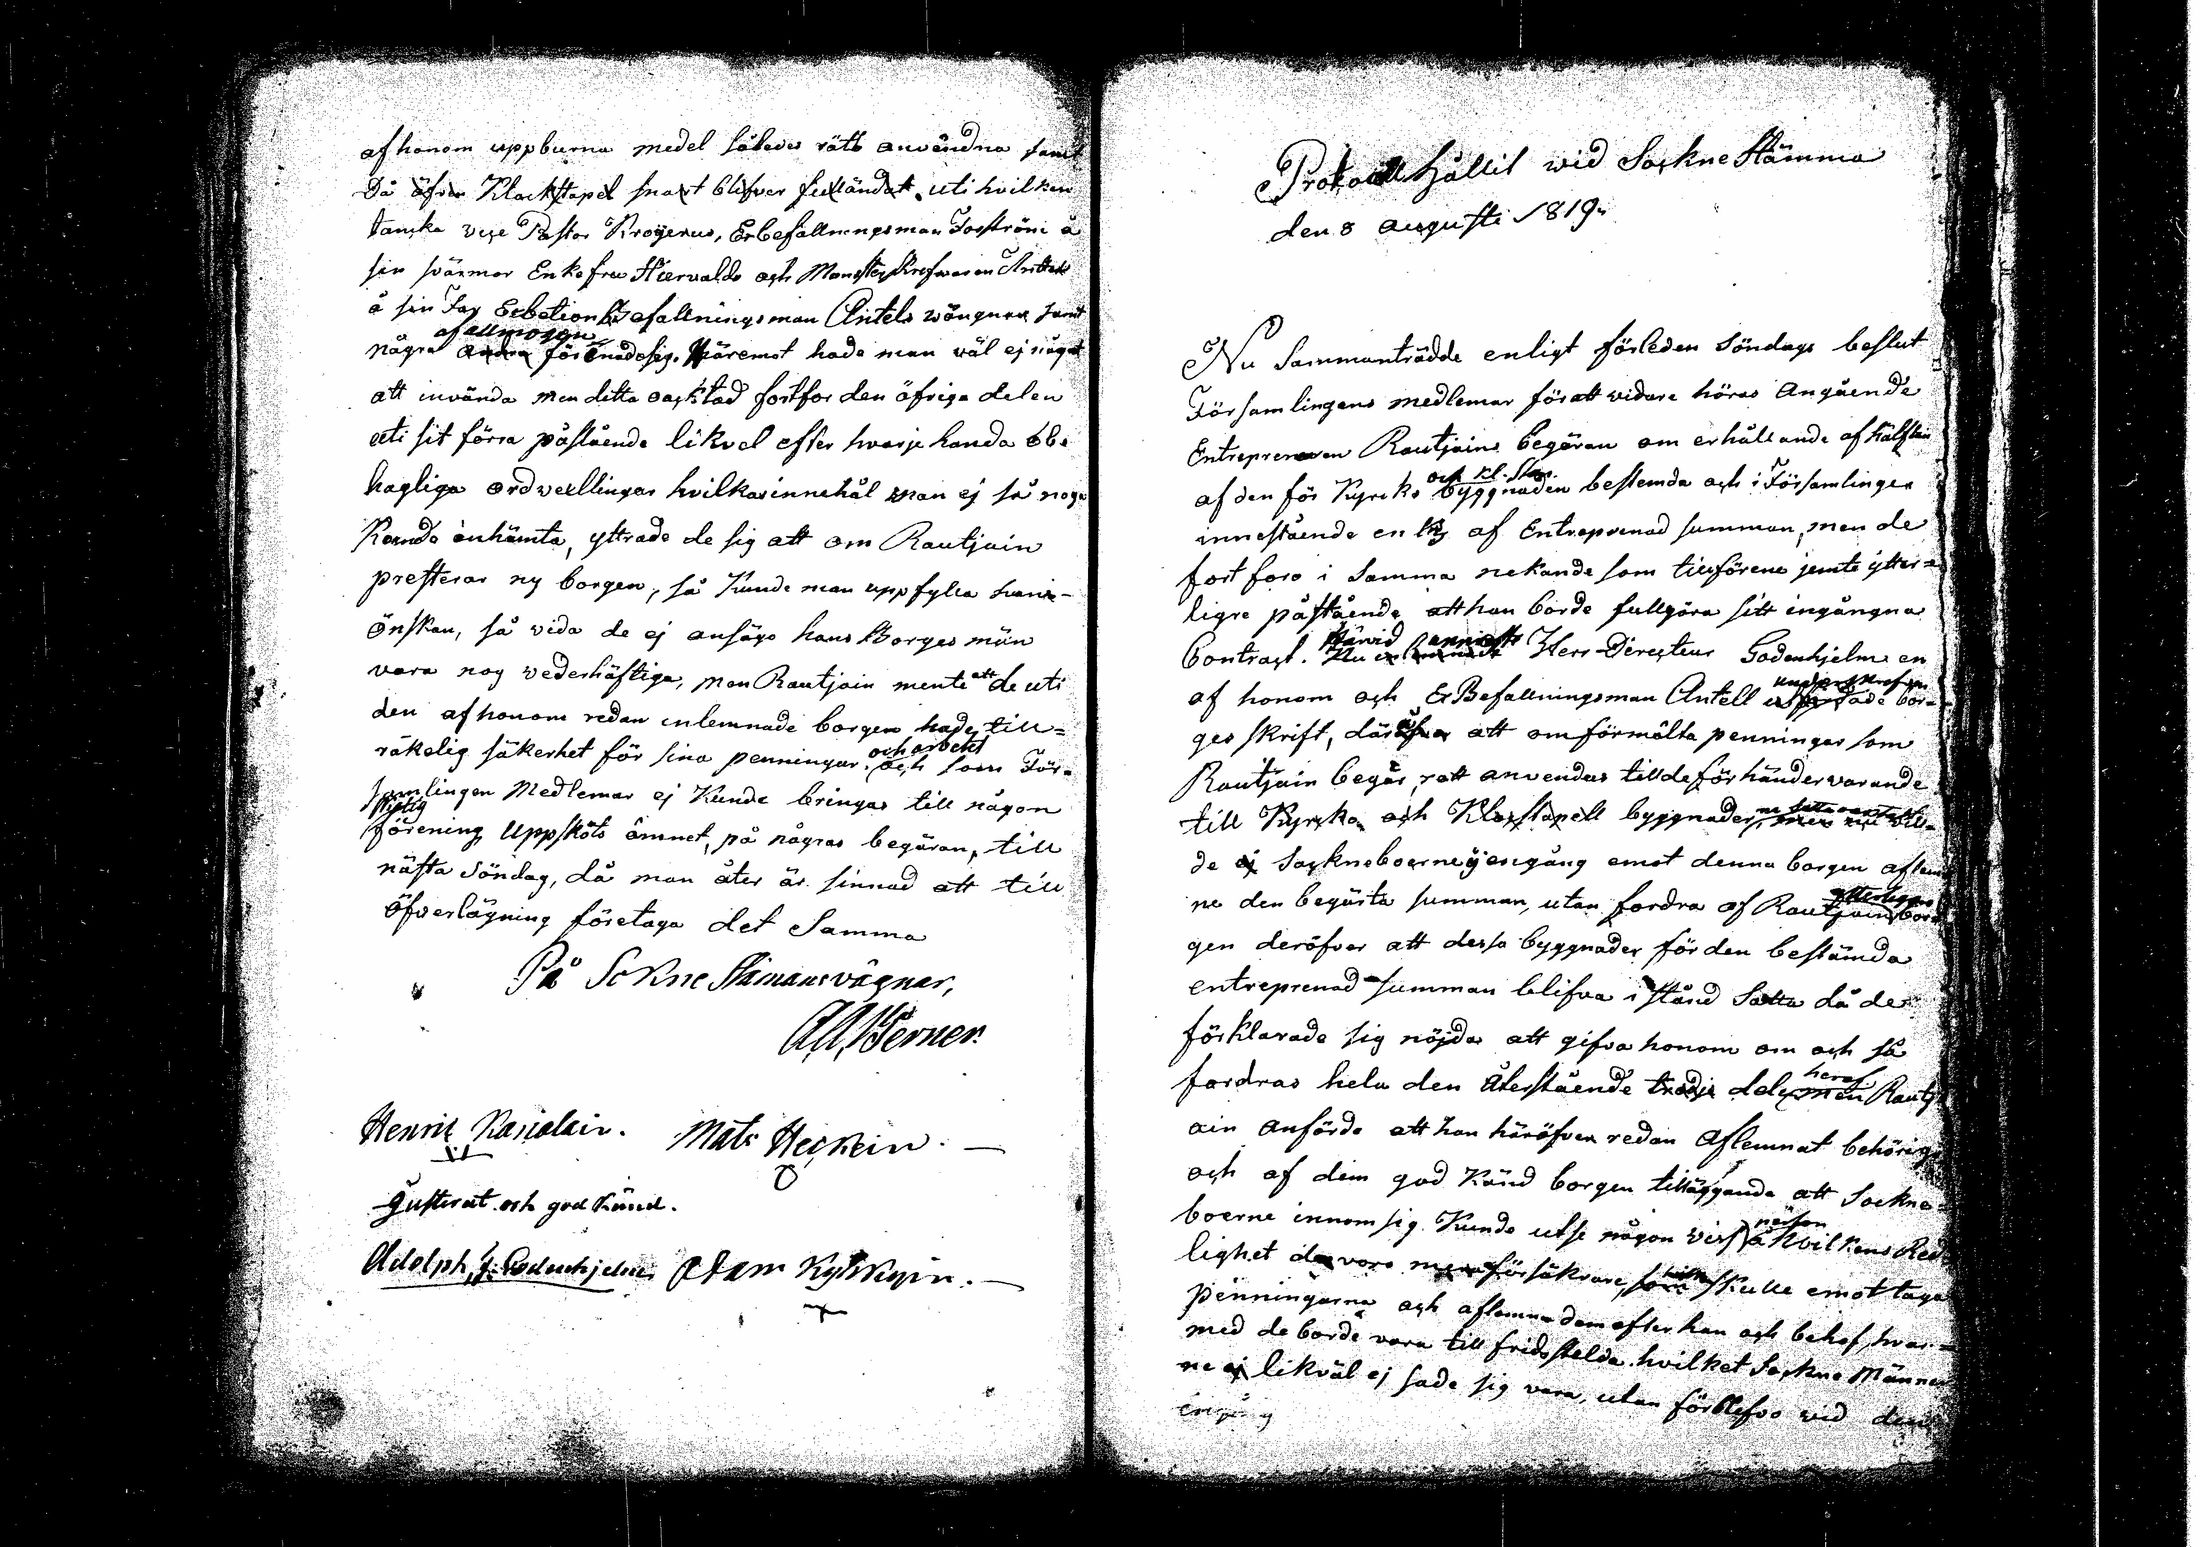 af honom uppburna medel således rätt användna samt
då äfven Klockstapel snart blifver fulländat. uti hvilken
tanka vice Pastor Krogerus, Erbefallningsman Forsström å
sin svärmor Enkefru Hiervalds och
å sin Befallningsman Antels wängnar samt
af allmogen
några andra förenade sig. Häremot hade man väl ej något
att invända men detta oacktad fortfor den öfriga delen
uti sit förra påstående likvel efter hvarje handa obe
hagliga ordvexllingar hvilkas innehål man ej så noga
Kunde inhämta, yttrade de sig att om Rautjain
presterar ny borgen, så Kunde man uppfylla hans
önskan, så vida de ej ansågo hans Borges män
vara nog vederhäftiga, men Rautjain mente att de uti
den af honom redan inlemnade borgen hade till=
räkelig säkerhet för sina penningar. och arbetet och som För=
samlingen Medlemar ej Kunde bringas till någon
förening Uppsköts ämnet, på någras begäran, till
nästa Söndag, då man åter är sinnad att till
öfverlägning företaga det Samma
På Sokne Stämans vägnar,
Henric Karialain. Mats Heckein.
Justerat och god Känd.
Adolph J. Godenhjelm Adam Kyrkyin.
Protocoll hållit wid Sockne Stämma
den 8 augusti 1819.
Nu Sammanträdde enligt förleden Söndags beslut
Församlingens medlemar för att vidare höras angående
Entreprenøren Rautjains begäran om erhållande af hälften
och kl. Stap.
af den för Kyrcko byggnaden bestemda och i Församlingen
innestående en 1/3 af Entreprenad summan, men de
fort foro i Samma nekande som tillförene jemte ytter=
ligre påstående att han borde fullgöra sitt ingångna
Contract. Härvid Herr Directeur Godenhjelm en
af honom och ErBefallningsman Antell underskrefven bor=
ges skrift, däröfver att omförmälta penningar som
Rautjain begär, att anvendas till de förhändervarande
till Kyrcko och Klockstapell byggnader,
de ej Sockneboerne engång emot denna borgen aflem
ne den begärta summan, utan fordra af Rautjain ytterligare bor
gen deröfver att dessa byggnader för den bestämda
entreprenad summan blifva i stånd Satta då de
förklarade sig nöjda att gifva honom om och så
fordras hela den återstående tredje del, heraf men Rautj
ain anförde att han häröfver redan aflemnat behörig
och af dem god Känd borgen tilläggande att Sockne=
boerne innom sig Kunde utse någon viss person å hvilkens Red
lighet de voro försäkrare, som skulle emottaga
penningarna och aflemna dem efter han och behof, hvar=
med de borde vara till fridsstelde. hvilket Sockne Männer
ne ej likväl ej sade sig vara, utan förblefvo wid deras